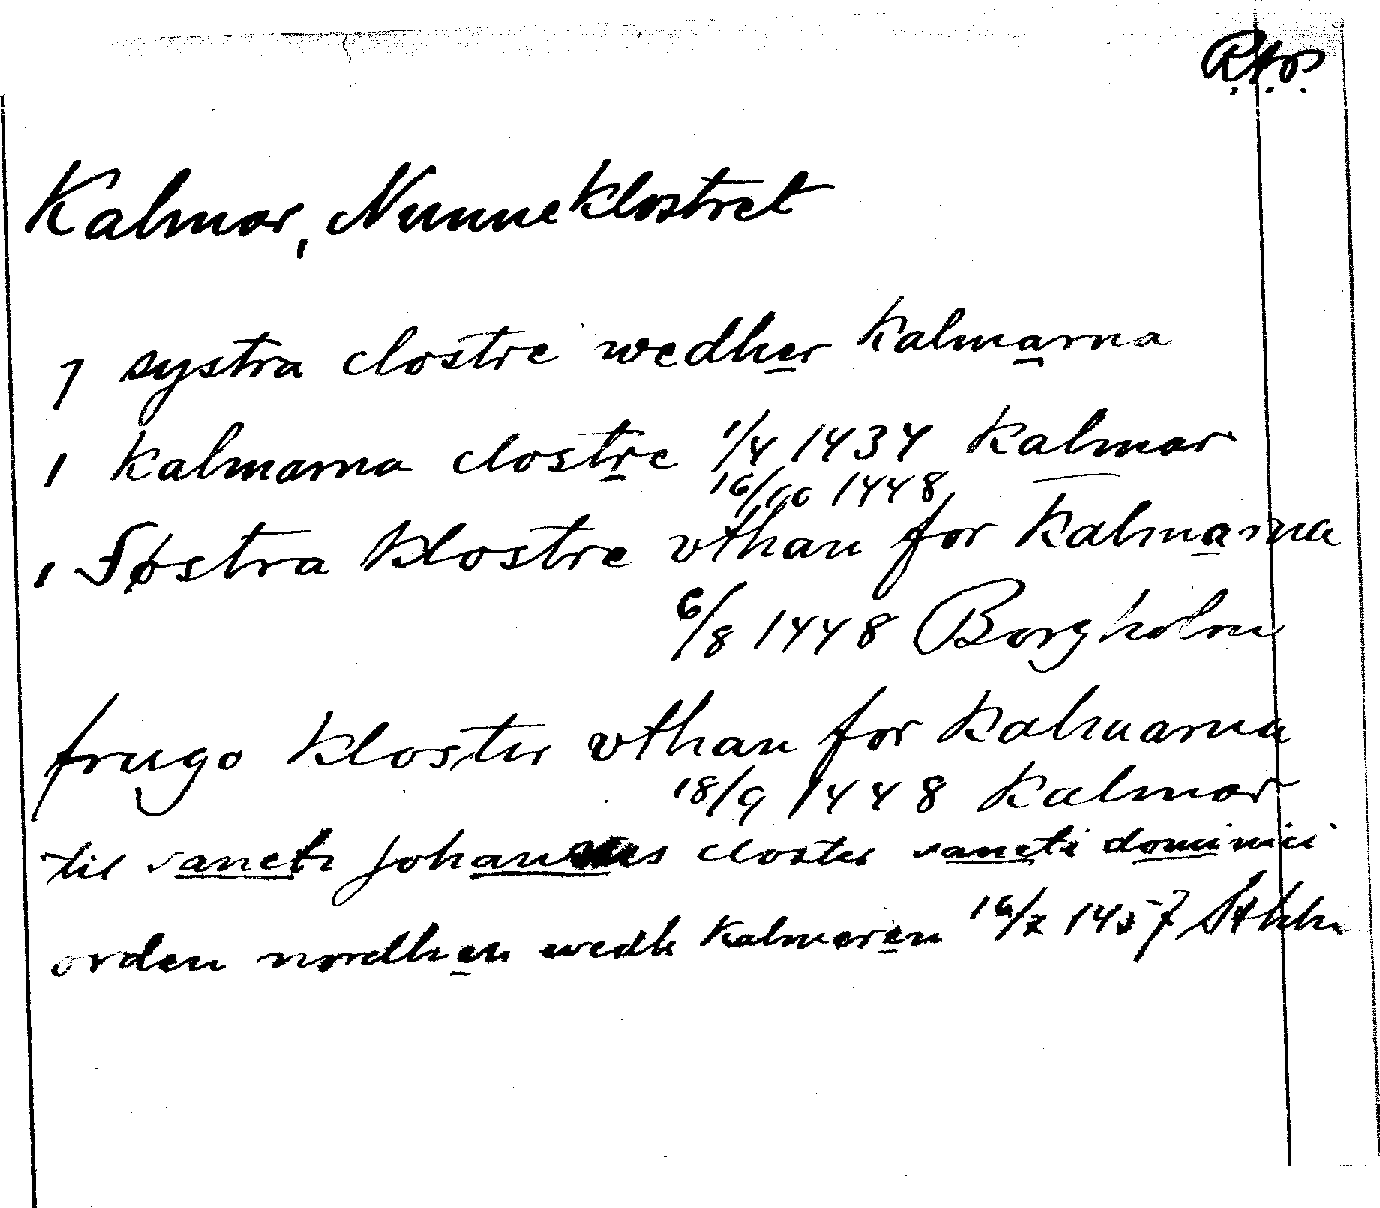 R.A.P.
Kalmar, Nunneklostret
j systra clostre wedher Kalmarna
1 Kalmarna clostre 1/4 1434 Kalmar
16/10 1448
1 Føstra Klostre vthan for Kalmarna
6/8 1448 Borgholm
frugo Kloster vthan for Kalmarna
18/9 1448 Kalmar
til sancti Johannes closter sancti dominici
orden nordhen wedh Kalmeren 16/7 1457 Sthlm